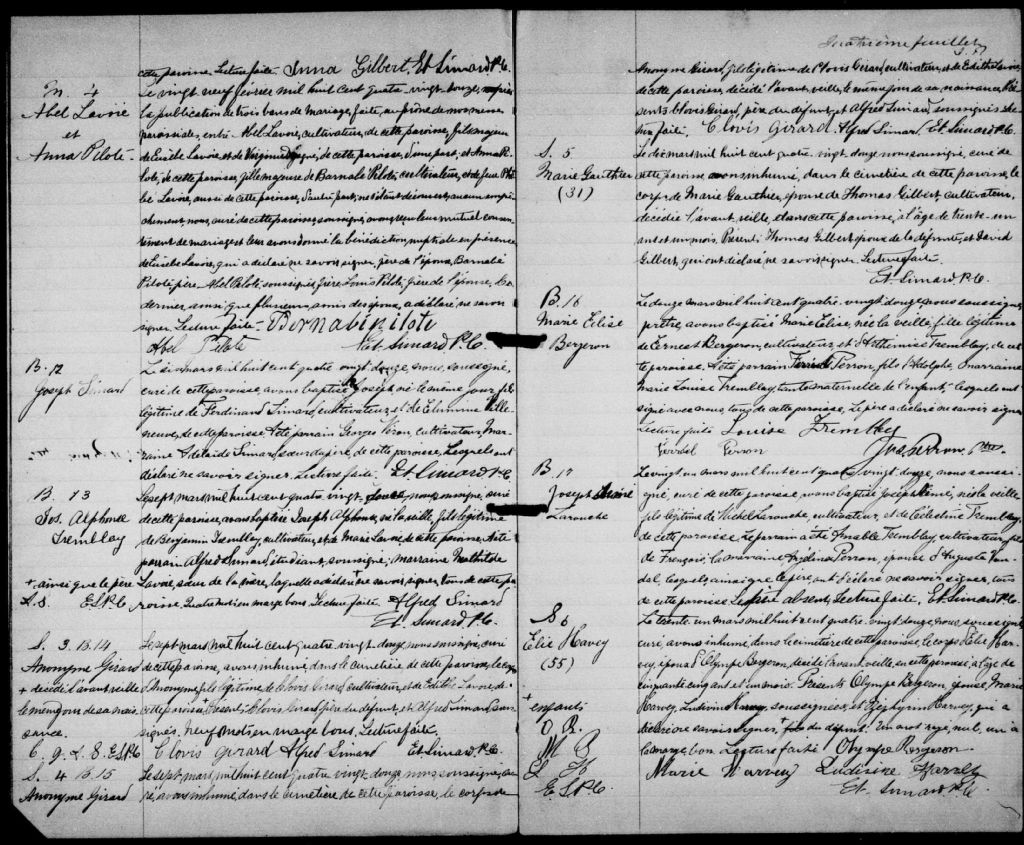 cette paroisse. Lecture faite. Anna Gilbert. Et. Simard P.C.
M. 4
Abel Lavoie
et
Anna Pilote
Le vingt neuf février mil huit cent quatre vingt douze, après
la publication de trois bans de mariage, faite, au prône de nos messes
paroissiales, entre Abel Lavoie, cultivateur, de cette paroisse, fils majeur
de Eusèbe Lavoie et de Virginie Gagné, de cette paroisse, d'une part; et Anna Pi-
lote, de cette paroisse, fille mineure de Barnabé Pilote, cultivateur, et de feue Phé-
be Lavoie, aussi de cette paroisse, d'autre part; ne s'étant découvert aucun empê-
chement, nous, curé de cette paroisse, soussigné, avons reçu leur mutuel consen-
tement de mariage et leur avons donné la bénédiction nuptiale en présence
de Eusèbe Lavoie, qui a déclaré ne savoir signer, père de l'époux, Barnabé
Pilote père, Abel Pilote, soussignés, frère, Louis Pilote, frère de l'épouse. Ce
dernier, ainsi que plusieurs amis des époux, a déclaré ne savoir
signer. Lecture faite. Bernabé pilote
Abel Pilote Et. Simard P.C.
B. 12
Joseph Simard
Le six mars mil huit cent quatre vingt douze, nous, soussigné,
curé de cette paroisse, avons baptisé Joseph, né le même jour, fils
légitime de Ferdinand Simard, cultivateur, et de Ville-
neuve, de cette paroisse. A été parrain Georges Véron, cultivateur, Mar-
raine Adelaïde Simard, sœur du père, de cette paroisse, Lesquels ont
déclaré ne savoir signer. Lecture faite. Et. Simard P.C.
B. 13
Jos. Alphonse
Tremblay
Le sept mars mil huit cent quatre vingt douze, nous, soussigné, curé
de cette paroisse, avons baptisé Joseph Alphonse, né la veille, fils légitime
de Benjamin Tremblay, cultivateur, et de Marie Lavoie, de cette paroisse. A été
parrain Alfred Simard, étudiant, soussigné; marraine Mathilde
+ ainsi que le père
A.S. E.S.P.C
Lavoie, sœur de la mère, laquelle a déclaré + ne savoir signer, tous de cette pa-
roisse. Quatre mots en marge bons. Lecture faite. Alfred Simard
Et. Simard P.C.
S. 3. B. 14
Anonyme Girard
+ décédé l'avant veille
le même jour de sa nais-
sance.
C. G. A. S. E.S.P.C
Le sept mars mil huit cent quatre vingt douze, nous, soussigné, curé
de cette paroisse, avons inhumé dans le cimetière de cette paroisse, le corps
d'Anonyme, fils légitime de Clovis Girard, cultivateur, et de Edith Lavoie, de
cette paroisse + Présents, Clovis Girard, père du défunt, et Alfred Simard, sous-
signés. Neuf mots en marge bons. Lecture faite.
Clovis Girard Alfred Simard Et. Simard P.C.
S. 4 B. 15
Anonyme Girard
Le sept mars, mil huit cent quatre vingt douze, nous, soussigné, cu-
ré, avons inhumé, dans le cimetière de cette paroisse, le corps de
Quatrième feuillet
Anonyme Girard, fils légitime de Clovis Girard, cultivateur, et de Edith Lavoie,
de cette paroisse, décédé l'avant veille, le même jour de sa naissance. Pré-
sents Clovis Girard, père du défunt, et Alfred Simard soussignés. Lec-
ture faite. Clovis Girard. Alfred Simard. Et. Simard P.C.
S. 5
Marie Gauthier
(31)
Le dix mars mil huit cent quatre vingt douze, nous, soussigné, curé de
cette paroisse, avons inhumé, dans le cimetière de cette paroisse, le
corps de Marie Gauthier, épouse de Thomas Gilbert, cultivateur,
décédée l'avant veille, dans cette paroisse, à l'âge de trente-un
ans et un mois. Présents Thomas Gilbert, époux de la défunte, et David
Gilbert, qui ont déclaré ne savoir signer. Lecture faite.
Et. Simard P.C.
B. 16
Marie Elise
Bergeron
Le douze mars mil huit cent quatre vingt douze, nous, soussigné,
prêtre, avons baptisé Marie Elise, née la veille, fille légitime
de Ernest Bergeron, cultivateur, et d'Arthémise Tremblay, de cet-
te paroisse. A été parrain Perron, fils d'Adolphe, marraine
Marie Louise Tremblay, tante maternelle de l'enfant, lesquels ont
signé avec nous, tous de cette paroisse. Le père a déclaré ne savoir signer.
Lecture faite Louise Trembley
Perron Jos. Perron, Ptre.
B. 17
Joseph Aimé
Larouche
Le vingt un mars mil huit cent quatre vingt douze, nous, soussi-
gné, curé de cette paroisse, avons baptisé Joseph Aimé, né la veille,
fils légitime de Michel Larouche, cultivateur, et de Célestine Tremblay,
de cette paroisse. Le parrain a été Amable Tremblay, cultivateur, fils
de François; la marraine, Perron, épouse d'Auguste Van-
dal, lesquels, ainsi que le père, ont déclaré ne savoir signer, tous
de cette paroisse. Le père absent, Lecture faite. Et. Simard P.C.
S. 6
Elie Harvey
(55)
+
enfants
O. B.
M. H.
L. H.
E.S.P.C.
Le trente un mars mil huit cent quatre vingt douze, nous, soussigné
curé, avons inhumé dans le cimetière de cette paroisse, le corps d'Elie Har-
vey, époux d'Olympe Bergeron, décédé l'avant veille, en cette paroisse, à l'âge de
cinquante cinq ans et un mois. Présents Olympe Bergeron, épouse, Marie
Harvey, Ludivine Harvey, soussignées, et Zéphirin Harvey, qui a
déclaré ne savoir signer, + du défunt. Un mot rayé, nul, un à
la marge, bon. Lecture faite. Olympe Bergeron
Marie Harvey Ludivine Harvey
Et. Simard P.C.